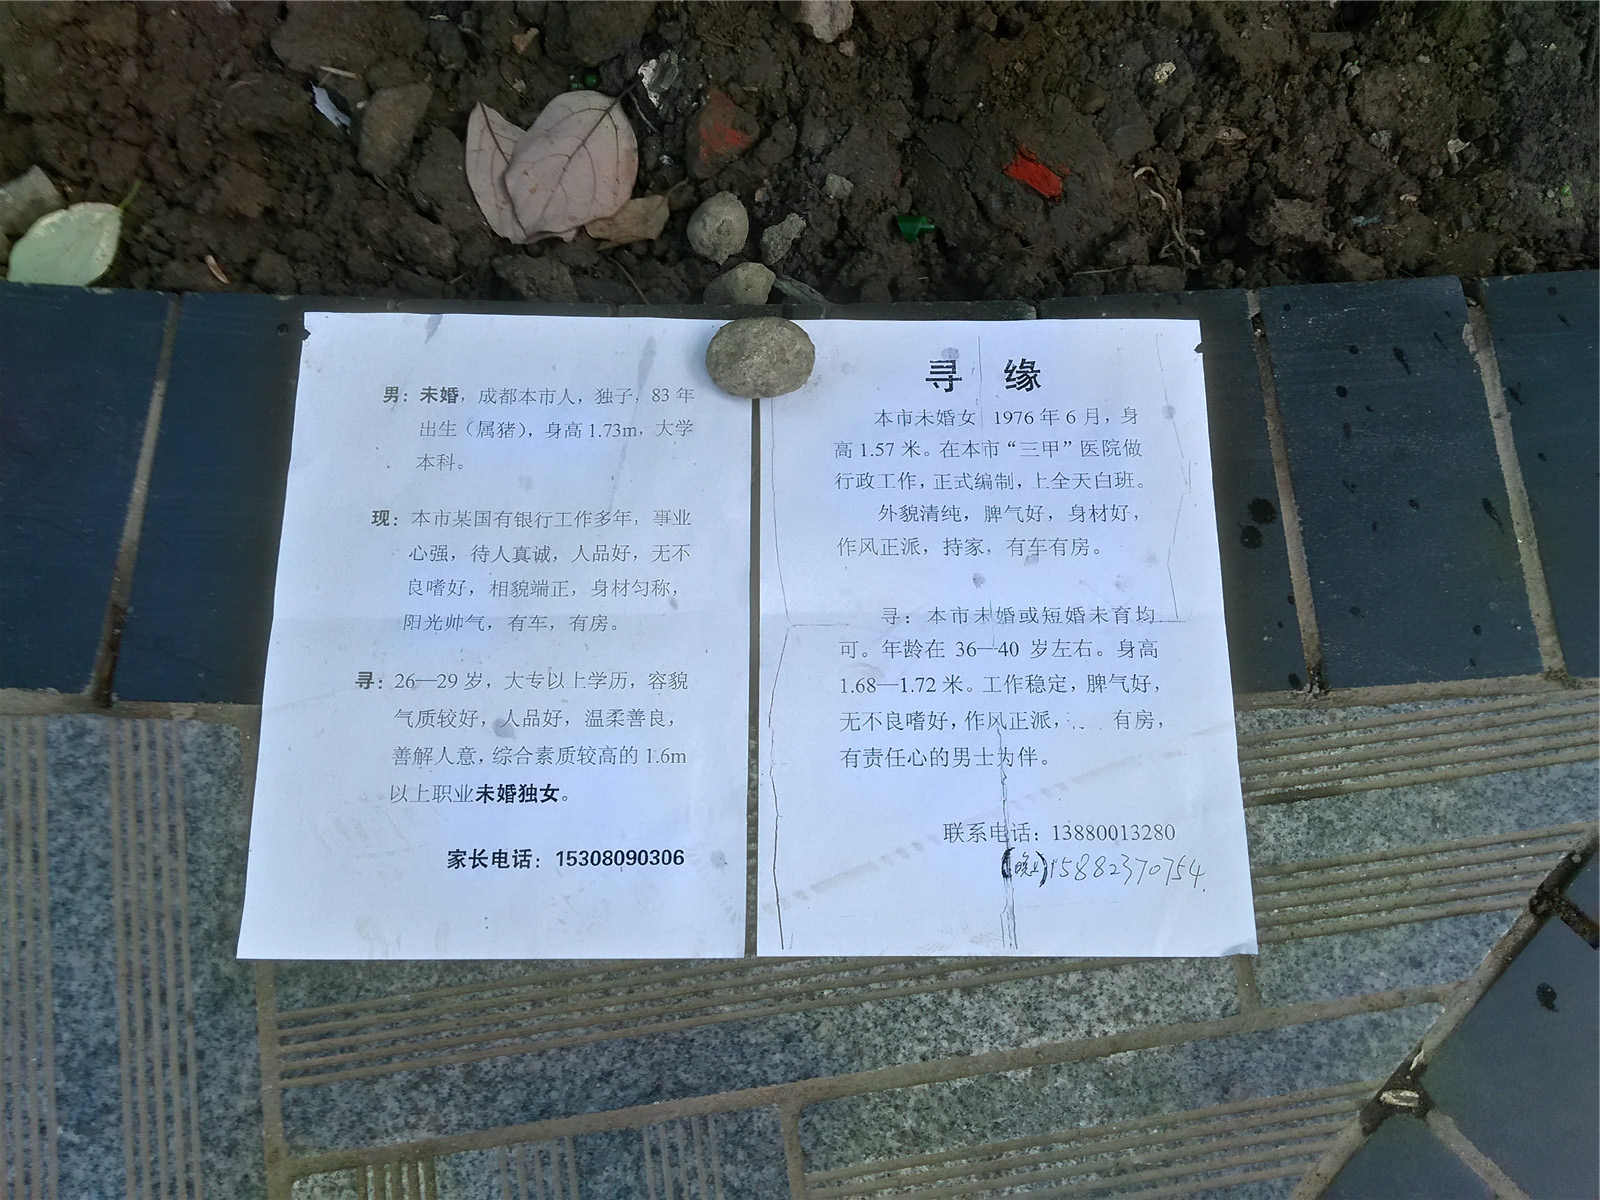 男：未婚，成都本市人，独子，83 年
出生（属猪），身高 1.73m，大学
本科。
现：本市某国有银行工作多年，事业
心强，待人真诚，人品好，无不
良嗜好，相貌端正，身材匀称，
阳光帅气，有车，有房。
寻：26—29 岁，大专以上学历，容貌
气质较好，人品好，温柔善良，
善解人意，综合素质较高的 1.6m
以上职业未婚独女。
家长电话：15308090306
寻 缘
本市未婚女 1976 年 6 月，身
高 1.57 米。在本市“三甲”医院做
行政工作，正式编制，上全天白班。
外貌清纯，脾气好，身材好，
作风正派，持家，有车有房。
寻：本市未婚或短婚未育均
可。年龄在 36—40 岁左右。身高
1.68—1.72 米。工作稳定，脾气好，
无不良嗜好，作风正派， 有房，
有责任心的男士为伴。
联系电话：13880013280
(晚上)15882370754.